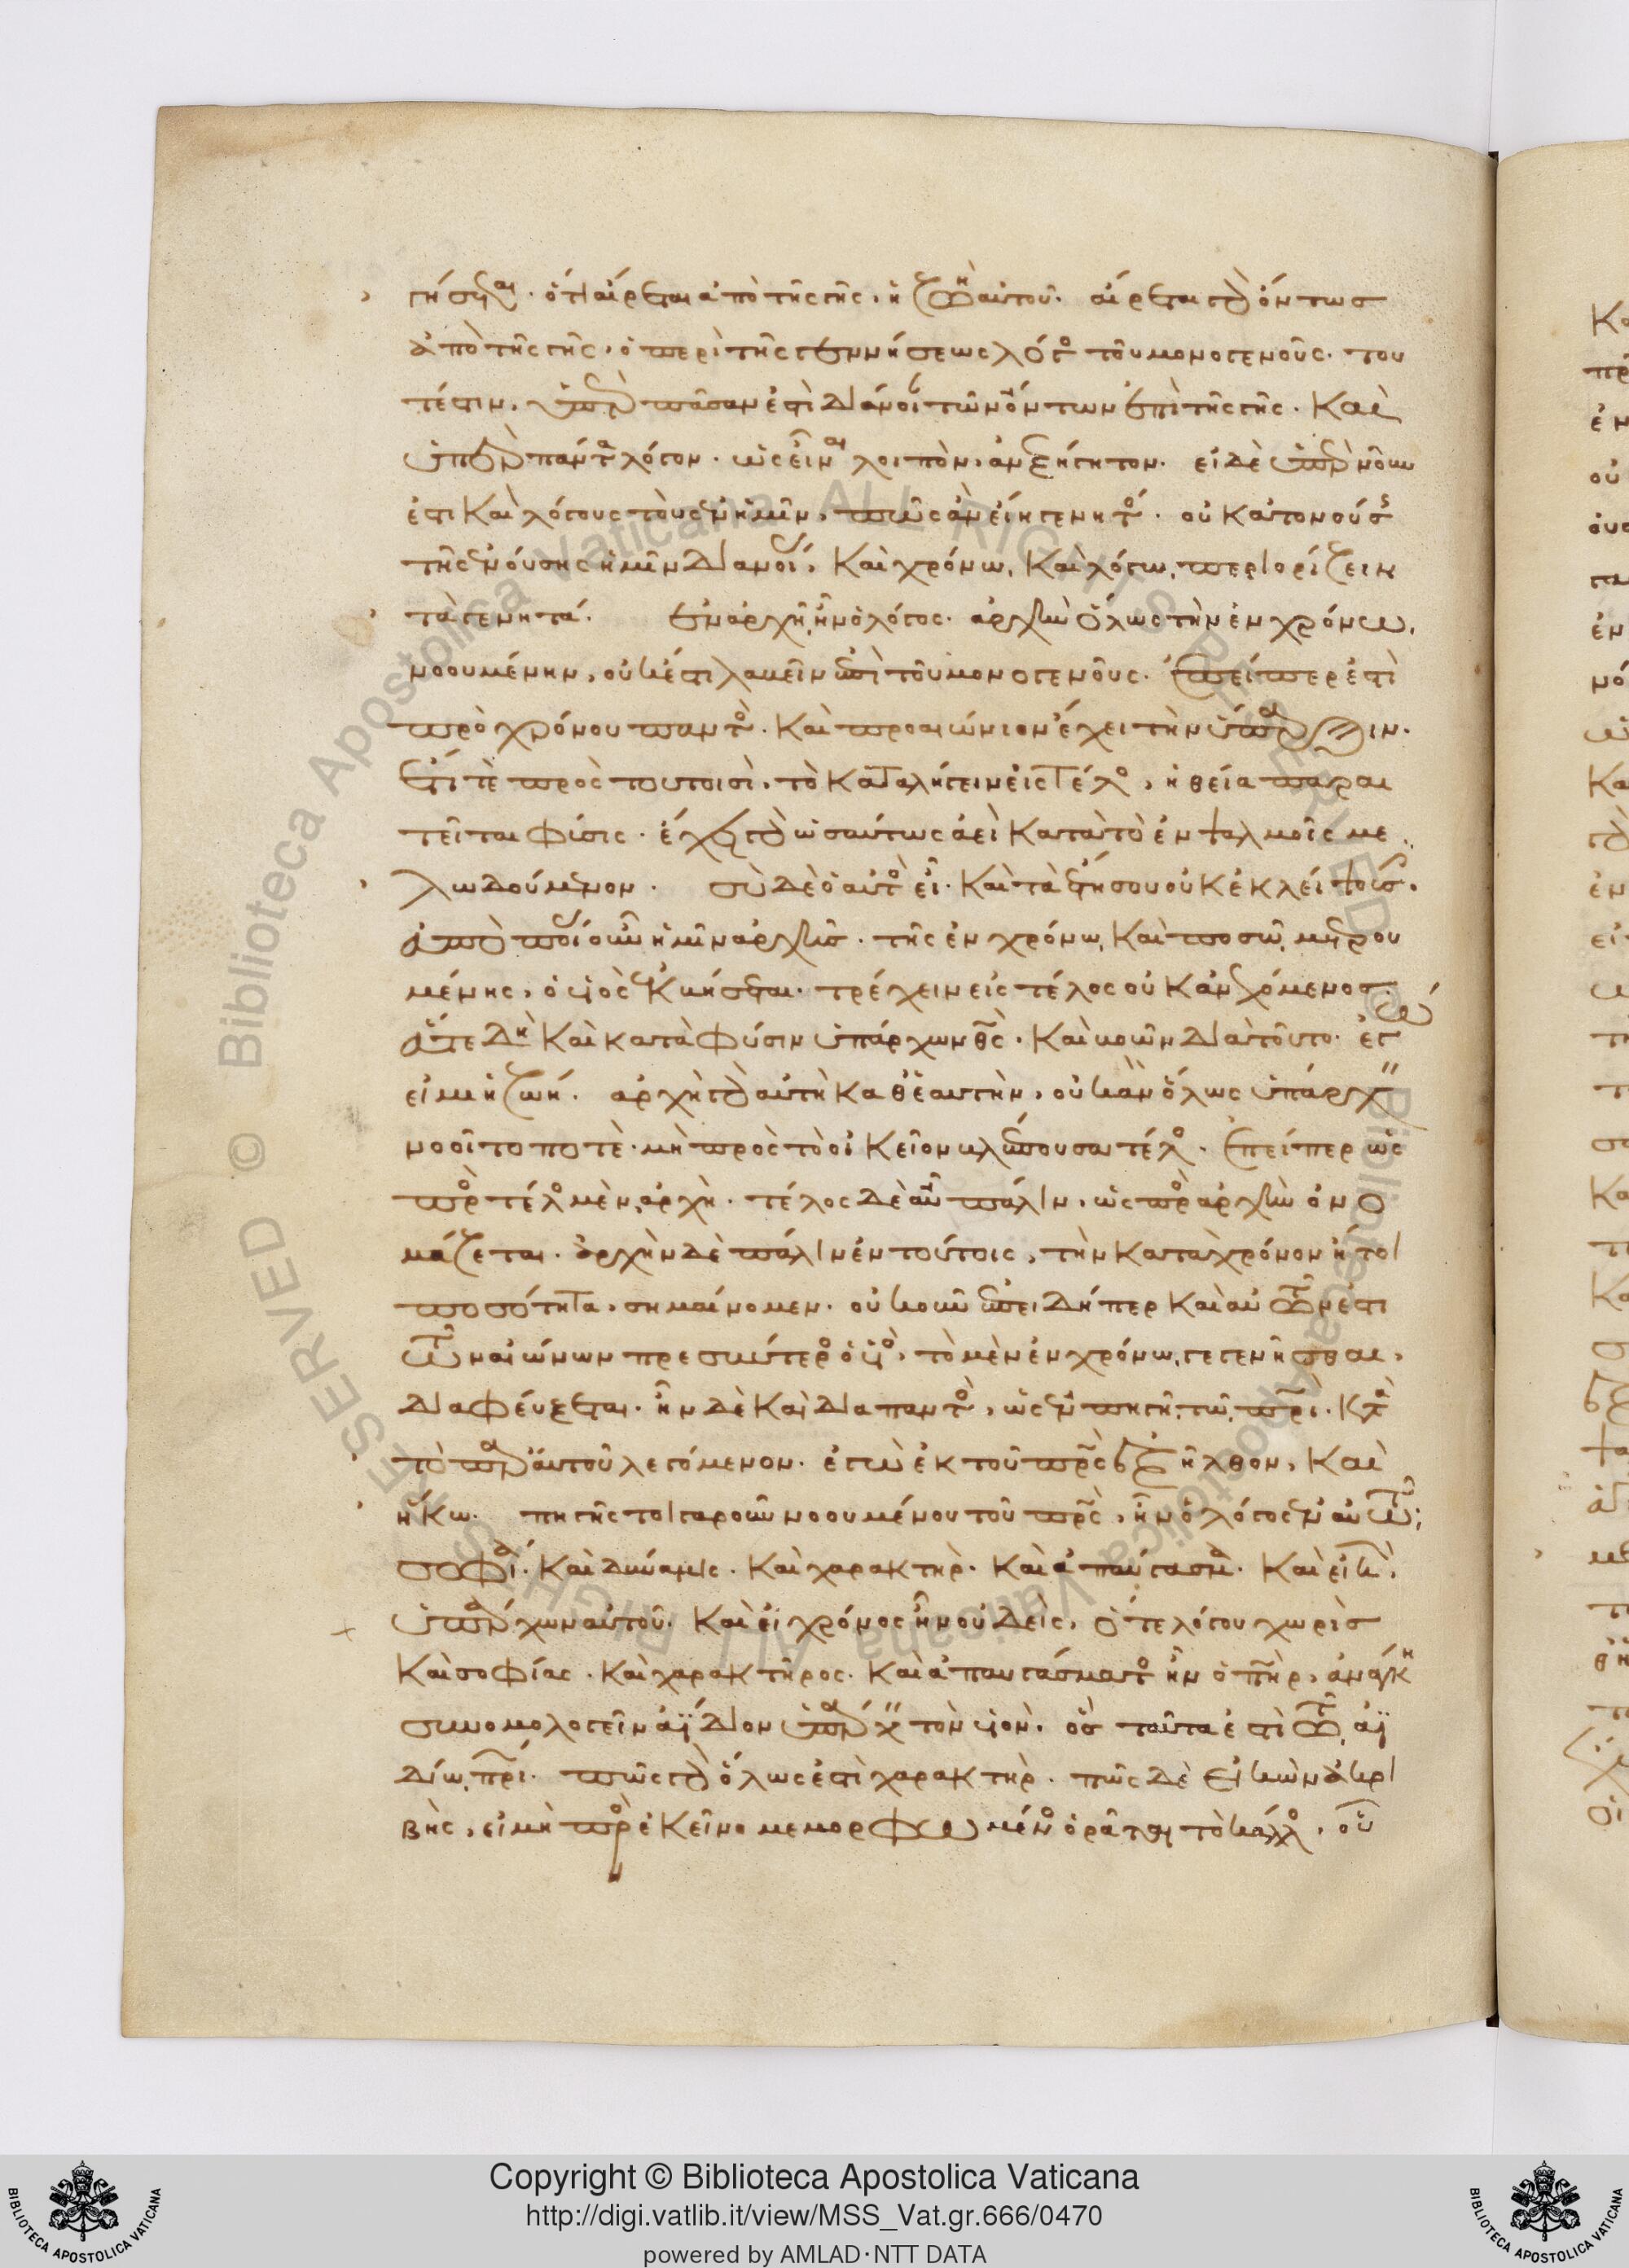 γήσεται. ὅτι αἴρεται ἀπὸ τῆς γῆς, ἡ ζωὴ αὐτοῦ. αἴρεται γὰρ ὄντως
ἀπὸ τῆς γῆς, ὁ περὶ τῆς γεννήσεως λόγος τοῦ μονογενοῦς. του
τέστιν, ὑπὲρ πᾶσαν ἐστὶ διάνοιαν τῶν ὄντων ἐπὶ τῆς γῆς. καὶ
ὑπὲρ πάντα λόγον. ὡς εἶναι λοιπὸν, ἀνεξήγητον. εἰ δὲ ὑπὲρ νοῦν
ἐστι καὶ λόγους τοὺς ἐν ἡμῖν, πῶς ἂν εἴη γενητός. οὐκ ἀτονούσης
τῆς ἐνούσης ἡμῖν διανοίας, καὶ χρόνω, καὶ λόγω, περιορίζειν
τὰ γενητά. ἐν ἀρχῆ, ἦν ὁ λόγος. ἀρχὴν ὅλως τὴν ἐν χρόνω,
νοουμένην, οὐκ ἔστι λαβεῖν ἐπὶ τοῦ μονογενοῦς. ἐπείπερ ἐστὶ
πρὸ χρόνου παντὸς. καὶ προαιώνιον ἔχει τὴν ὕπαρξιν.
ἔτι τὲ πρὸς τουτοισὶ, τὸ καταλήγειν εἰς τέλος, ἡ θεία παραι
τεῖται φύσις. ἔσται γὰρ ὡσαύτως ἀεὶ κατὰ τὸ ἐν ψαλμοῖς με
λωδούμενον. σὺ δὲ ὁ αὐτὸς εἶ. καὶ τὰ ἔτη σου οὐκ ἐκλείψουσιν.
ἀπὸ ποίας οὖν ἡμῖν ἀρχῆς. τῆς ἐν χρόνω, καὶ ποσῶ, μετρου
μένης, ὁ υἱὸς κινήσεται. τρέχειν εἰς τέλος οὐκ ἀνεχόμενος.
ἅτε δὴ καὶ κατὰ φύσιν ὑπάρχων θς̅. καὶ βοῶν διὰ τοῦτο. ἐγώ
εἰμι ἡ ζωή. ἀρχὴ γὰρ αὐτὴ καθ' ἑαυτὴν, οὐκ ἂν ὅλως ὑπάρχειν
νοοῖτο ποτὲ. μὴ πρὸς τὸ οἰκεῖον βλέπουσα τέλος. ἐπείπερ ὡς
πρὸς τέλος μὲν, ἀρχὴ. τέλος δὲ αὖ πάλιν, ὡς πρὸς ἀρχὴν ὀνο
μάζεται. ἀρχὴν δὲ πάλιν ἐν τούτοις, τὴν κατὰ χρόνον ἤτοι
ποσότητα, σημαίνομεν. οὐκοῦν ἐπειδήπερ καὶ αὐτῶν ἐστι
τῶν αἰώνων πρεσβύτερος ὁ υἱὸς, τὸ μὲν ἐν χρόνω, γεγενῆσθαι,
διαφεύξεται. ἦν δὲ καὶ διαπαντὸς, ὡς ἐν πηγῆ, τῶ, πρι̅. κατὰ
τὸ παρ' αὐτοῦ λεγόμενον. ἐγὼ ἐκ τοῦ πρς̅ ἐξῆλθον, καὶ
ἥκω. πηγῆς τοιγαροῦν νοουμένου τοῦ πρς̅, ἦν ὁ λόγος ἐν αὐτῶ;
σοφία. καὶ δύναμις. καὶ χαρακτὴρ. καὶ ἀπαύγασμα. καὶ εἰκὼν,
ὑπάρχων αὐτοῦ. καὶ εἰ χρόνος ἦν οὐδεὶς, ὅτε λόγου χωρὶς
καὶ σοφίας. καὶ χαρακτῆρος. καὶ ἀπαυγάσματος ἦν ὁ πη̅ρ, ἀνάγκη
συνομολογεῖν ἀΐδιον ὑπάρχειν τὸν υἱὸν. ὃς ταῦτα ἐστὶ τῶ, ἀϊ
δίω, πρι̅. πῶς γὰρ ὅλως ἐστὶ χαρακτὴρ. πῶς δὲ εἰκὼν ἀκρι
βὴς, εἰ μὴ πρὸς ἐκεῖνο μεμορφωμένος ὁρᾶται τὸ κάλλος, οὗ
Copyright © Biblioteca Apostolica Vaticana
http://digi.vatlib.it/view/MSS_Vat.gr.666/0470
powered by AMLAD·NTT DATA
BIBLIOTECA APOSTOLICA VATICANA
BIBLIOTECA APOSTOLICA VATICANA